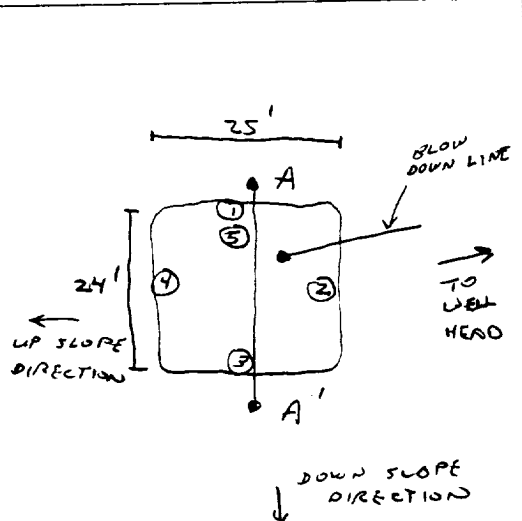 25'
BLOW
DOWN LINE
A
①
⑤
24'
④
②
TO
WELL
HEAD
UP SLOPE
DIRECTION
③
A'
DOWN SLOPE
DIRECTION